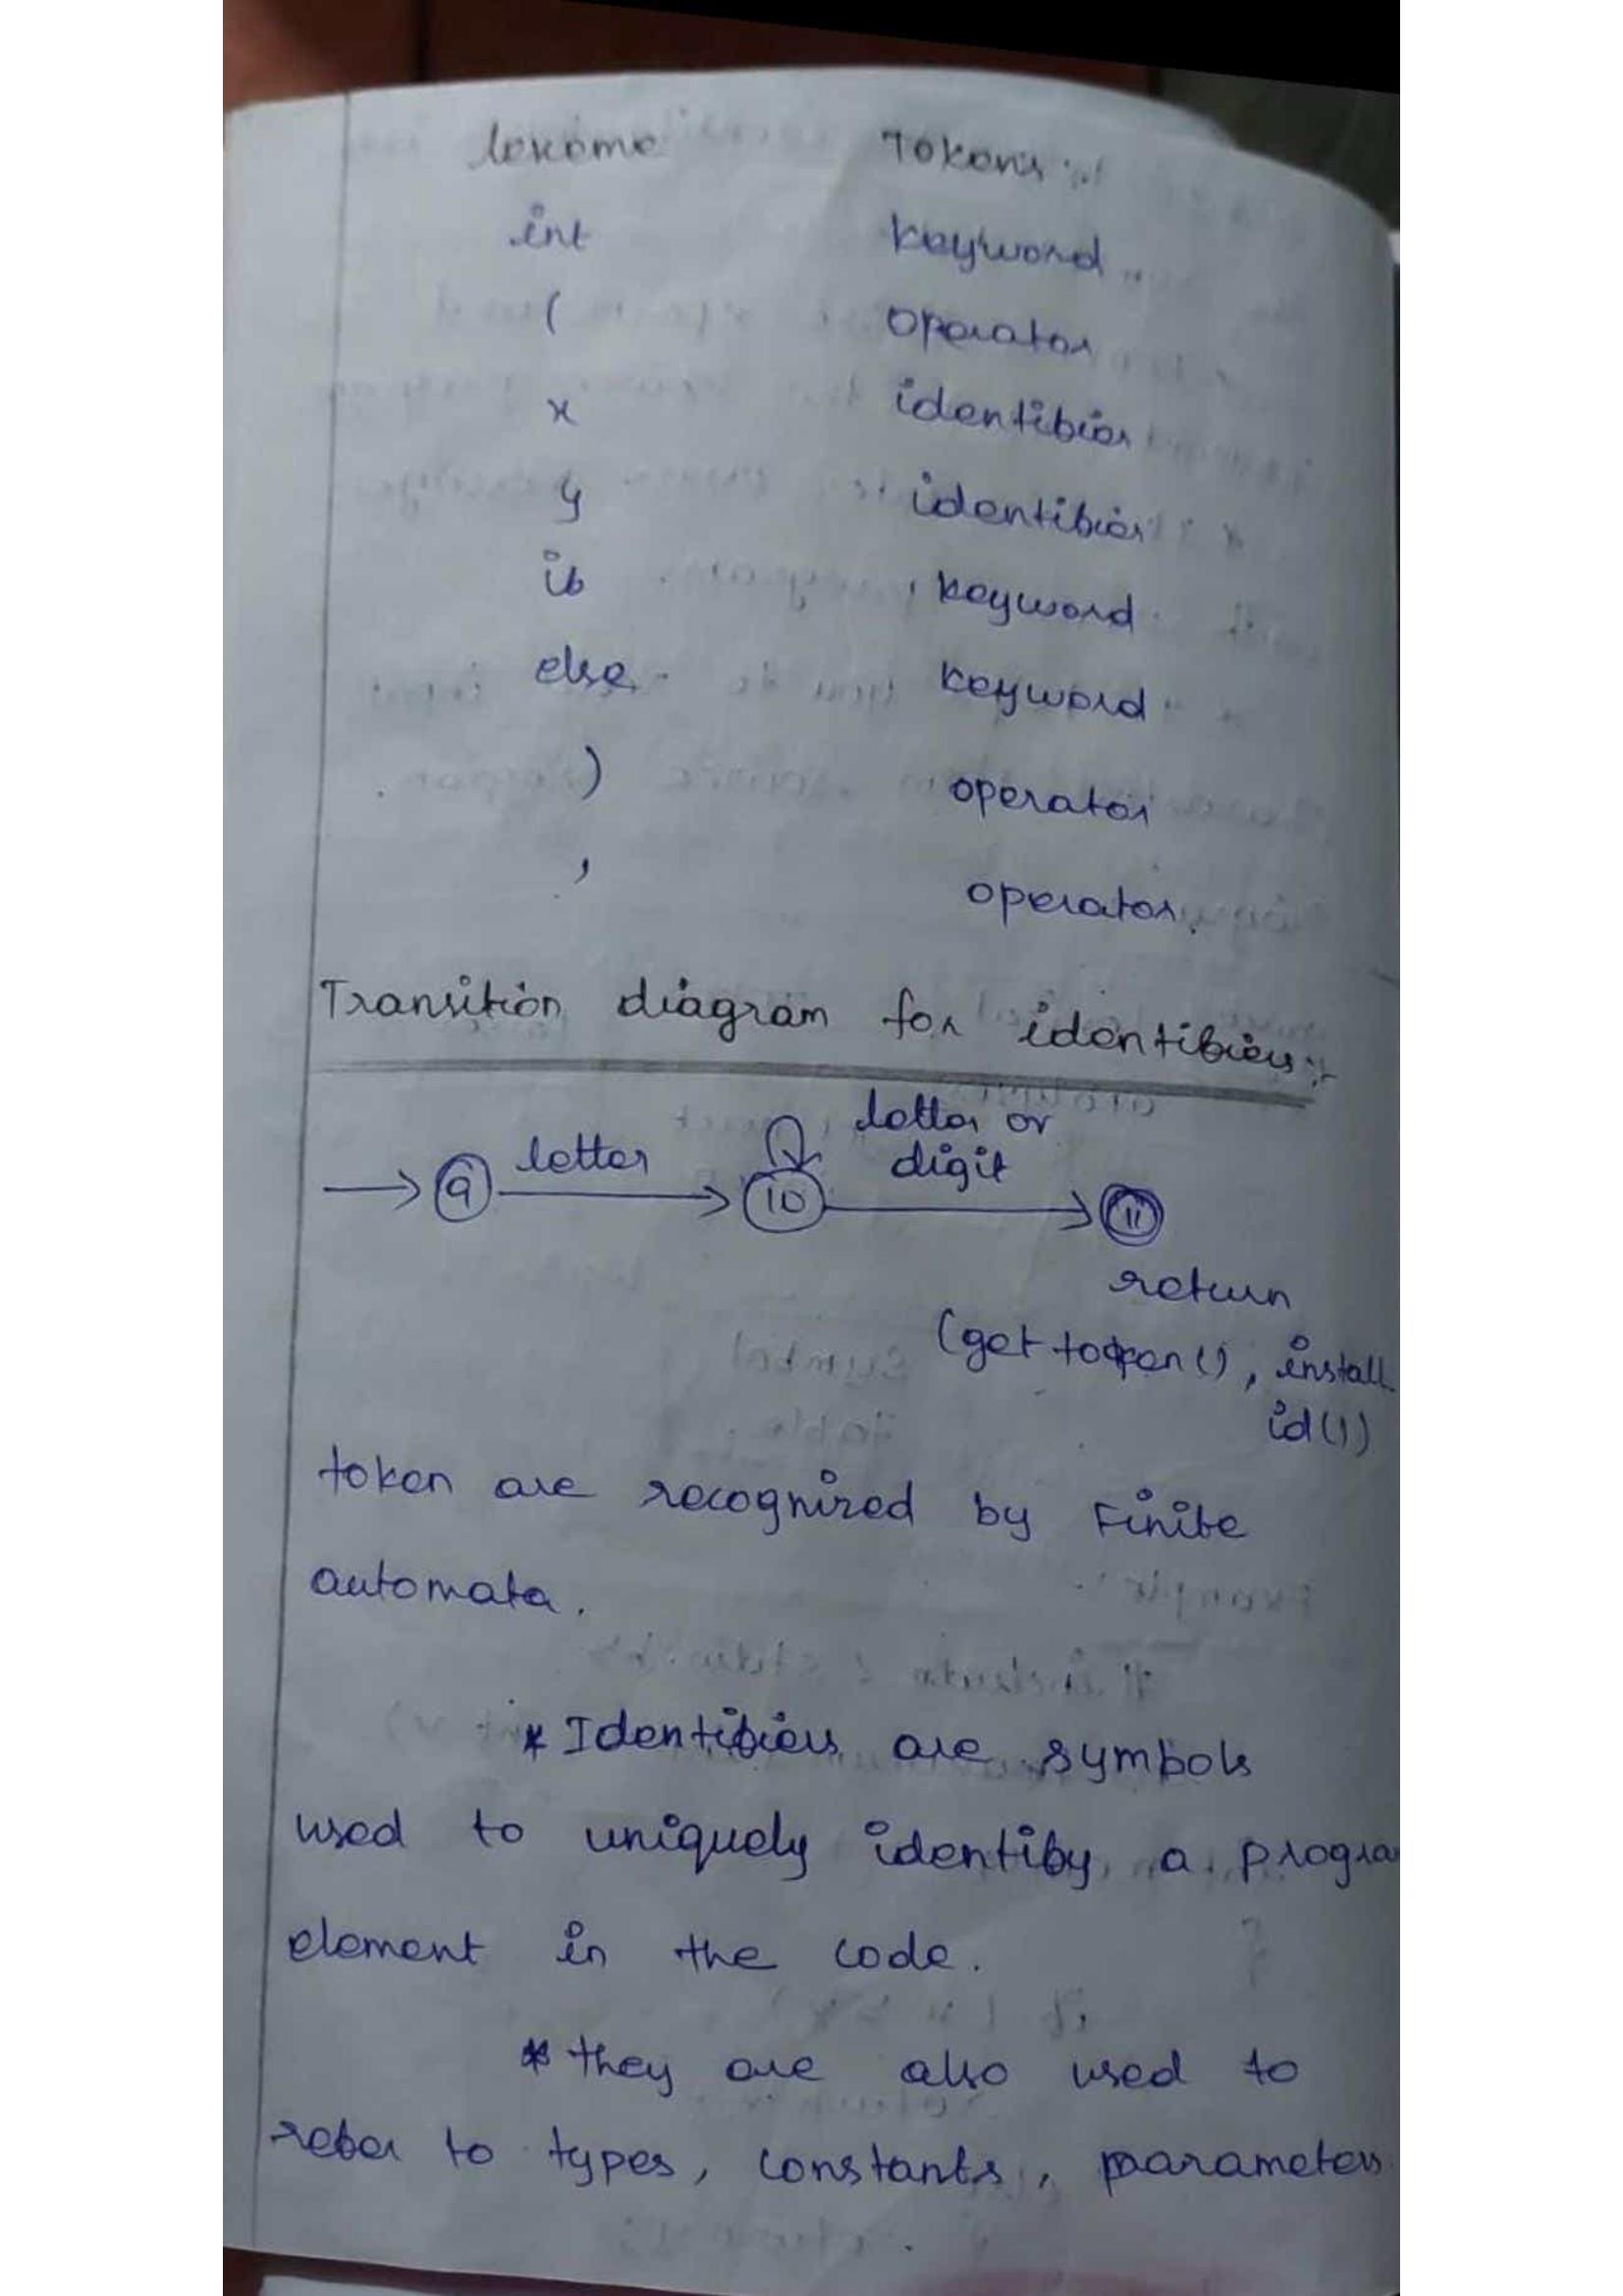 lexeme Tokens :-
int keyword
( operator
x identifier
y identifier
if keyword
else keyword
) operator
, operator.
Transition diagram for identifiers :-
letter or
letter digit
9 10 11
return
(get token(), install
id())
token are recognized by Finite
automata.
* Identifiers are symbols
used to uniquely identify a progra
element in the code.
* they are also used to
refer to types, constants, parameters